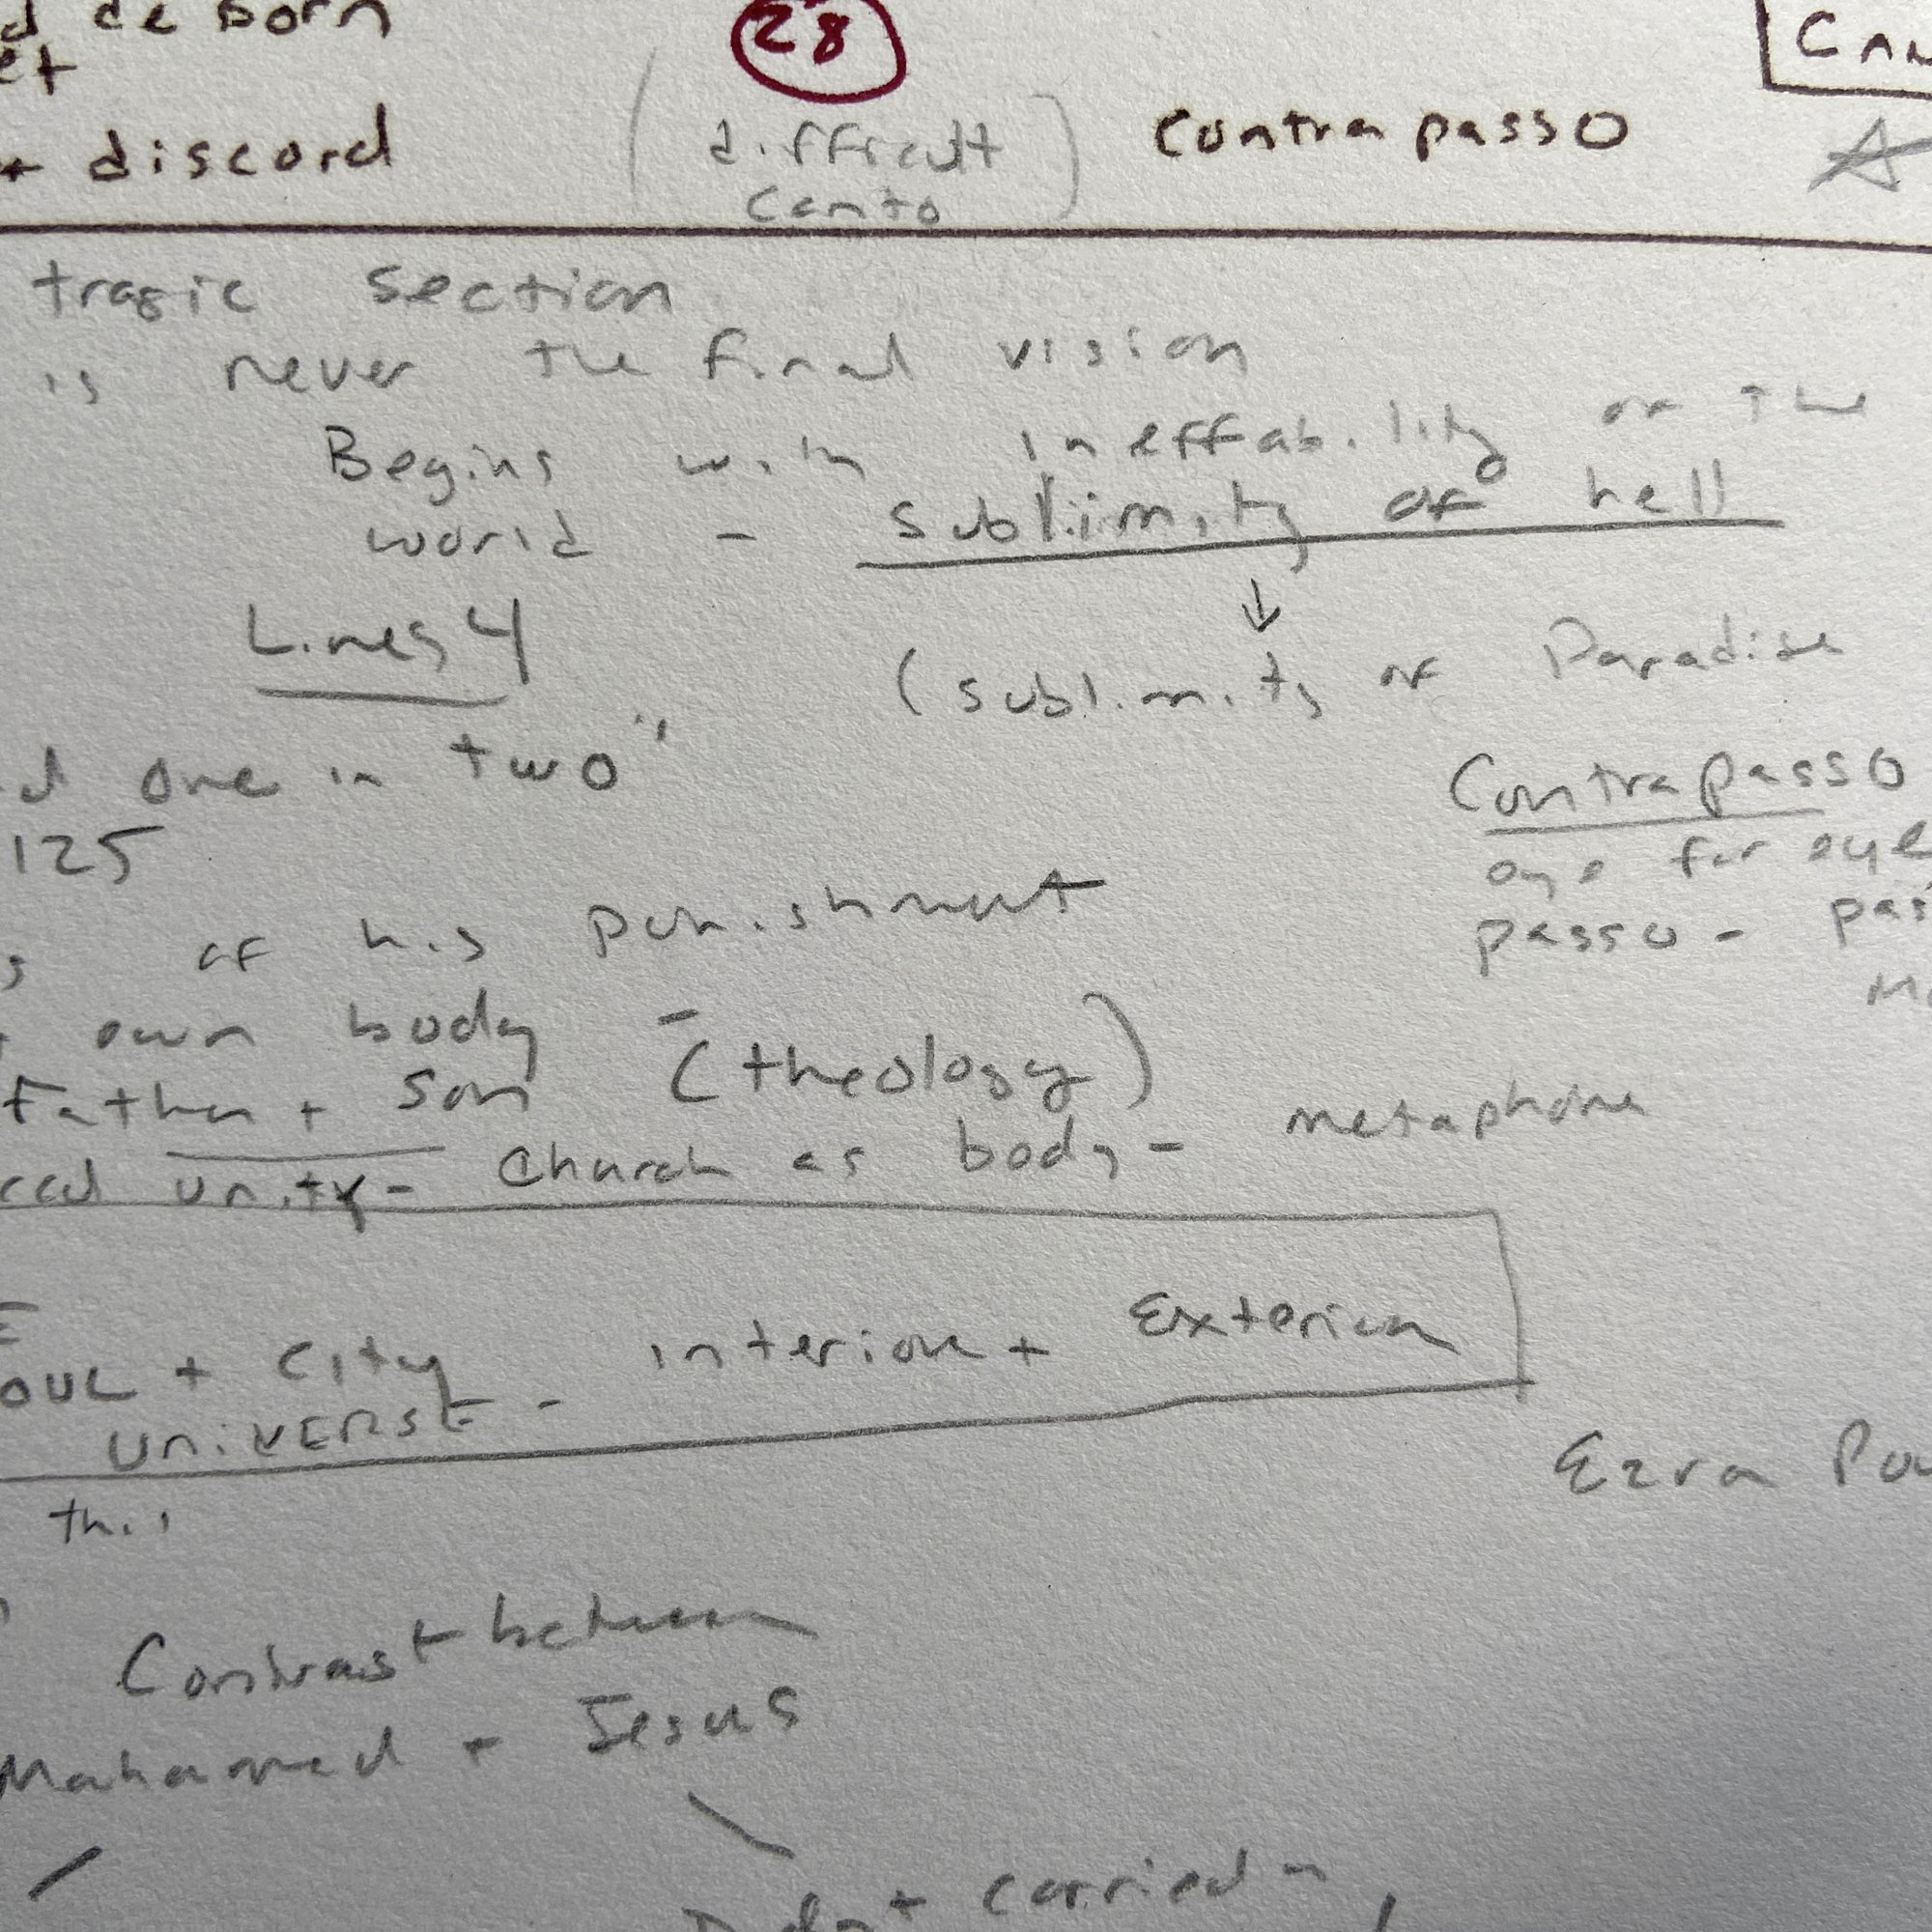 de Born
28
et
+ discord
(difficult
canto)
Contrapasso
tragic section
is never the final vision
Begins with ineffability of the
world - sublimity of hell
↓
Lines 4
(sublimity of Paradise
one in two"
125
Contrapasso
eye for eye
passo -
of his punishment
own body -
(theology)
Father + Son
unity - Church as body - metaphore
+ City interior + Exterior
UNIVERSE -
Ezra
this
Contrast between
Mahomed + Jesus
carried